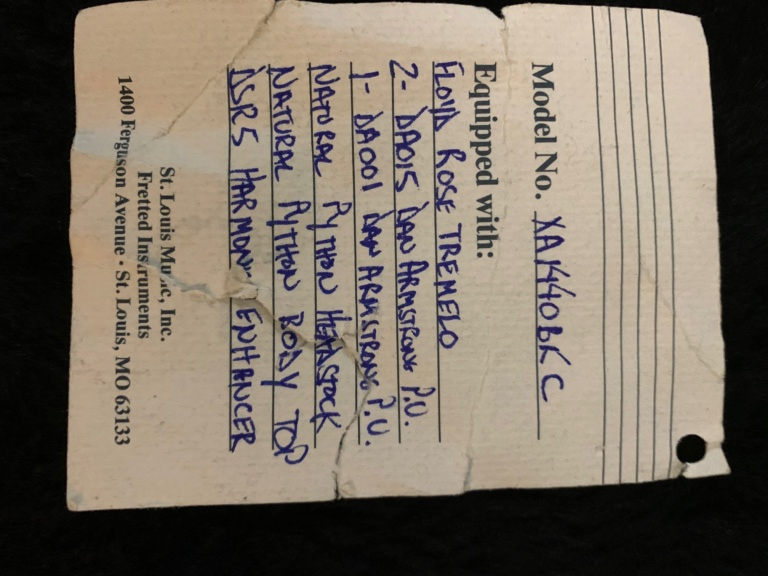 Model No. XA1440BKC
Equipped with:
FLOYD ROSE TREMELO
2- DA015 DAN ARMSTRONG P.U.
1- DA001 DAN ARMSTRONG P.U.
NATURAL PYTHON HEADSTOCK
NATURAL PYTHON BODY TOP
DSR5 ENHANCER
St. Louis Music, Inc.
Fretted Instruments
1400 Ferguson Avenue · St. Louis, MO 63133